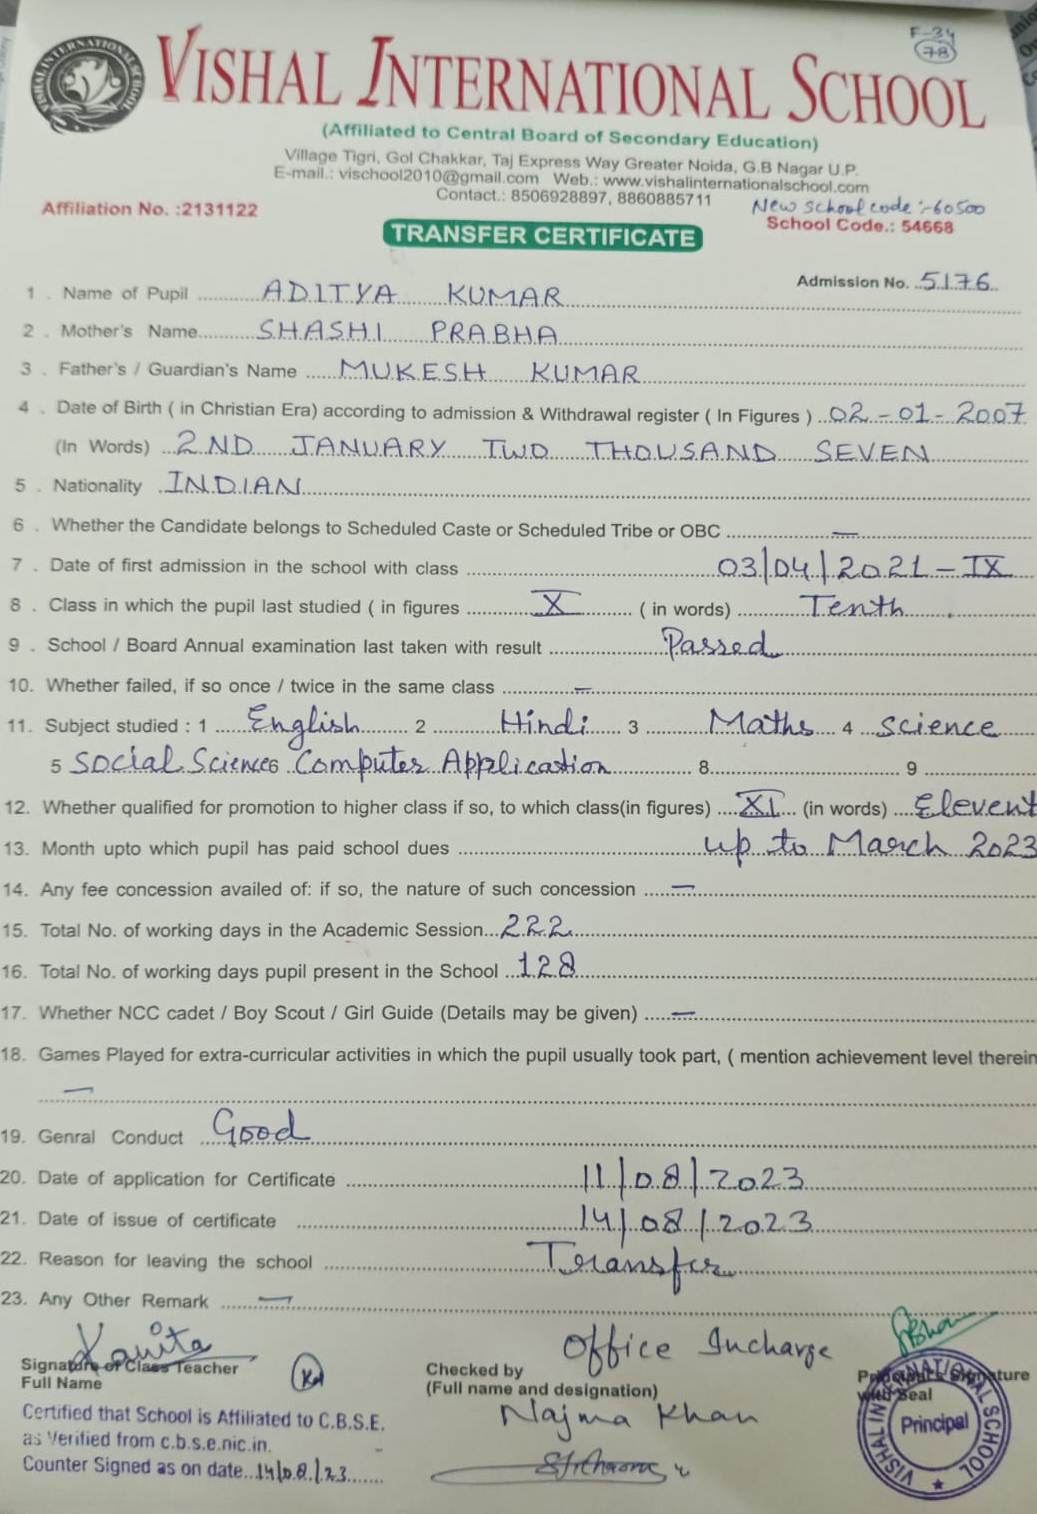 F-34
78
VISHAL INTERNATIONAL SCHOOL
(Affiliated to Central Board of Secondary Education)
Village Tigri, Gol Chakkar, Taj Express Way Greater Noida, G.B Nagar U.P.
E-mail.: vischool2010@gmail.com Web.: www.vishalinternationalschool.com
Contact.: 8506928897, 8860885711
New School code :- 60500
Affiliation No. :2131122
School Code.: 54668
TRANSFER CERTIFICATE
Admission No. 5176
1 . Name of Pupil ADITYA KUMAR
2 . Mother's Name SHASHI PRABHA
3 . Father's / Guardian's Name MUKESH KUMAR
4 . Date of Birth ( in Christian Era) according to admission & Withdrawal register ( In Figures ) 02-01-2007
(In Words) 2ND JANUARY TWO THOUSAND SEVEN
5 . Nationality INDIAN
6 . Whether the Candidate belongs to Scheduled Caste or Scheduled Tribe or OBC —
7 . Date of first admission in the school with class 03/04/2021 - IX
8 . Class in which the pupil last studied ( in figures X ( in words) Tenth
9 . School / Board Annual examination last taken with result Passed
10. Whether failed, if so once / twice in the same class —
11. Subject studied : 1 English 2 Hindi 3 Maths 4 Science
5 Social Science 6 Computer Application 8 9
12. Whether qualified for promotion to higher class if so, to which class(in figures) XI (in words) Elevent
13. Month upto which pupil has paid school dues up to March 2023
14. Any fee concession availed of: if so, the nature of such concession —
15. Total No. of working days in the Academic Session 222
16. Total No. of working days pupil present in the School 128
17. Whether NCC cadet / Boy Scout / Girl Guide (Details may be given) —
18. Games Played for extra-curricular activities in which the pupil usually took part, ( mention achievement level therein
—
19. Genral Conduct Good
20. Date of application for Certificate 11/08/2023
21. Date of issue of certificate 14/08/2023
22. Reason for leaving the school Transfer
23. Any Other Remark —
Kavita
Office Incharge
Signature of Class Teacher
Full Name
Checked by
(Full name and designation)
Principal's Signature
with Seal
Najma Khan
Certified that School is Affiliated to C.B.S.E.
as Verified from c.b.s.e.nic.in.
Counter Signed as on date 14/08/23
VISHAL INTERNATIONAL SCHOOL
Principal